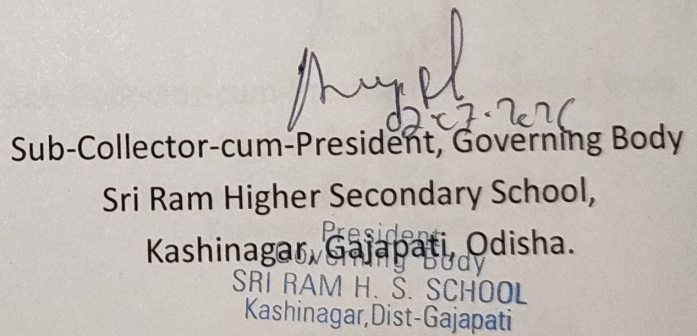 Sub-Collector-cum-President, Governing Body
Sri Ram Higher Secondary School,
Kashinagar, Gajapati, Odisha.
President
Governing Body
SRI RAM H. S. SCHOOL
Kashinagar, Dist-Gajapati